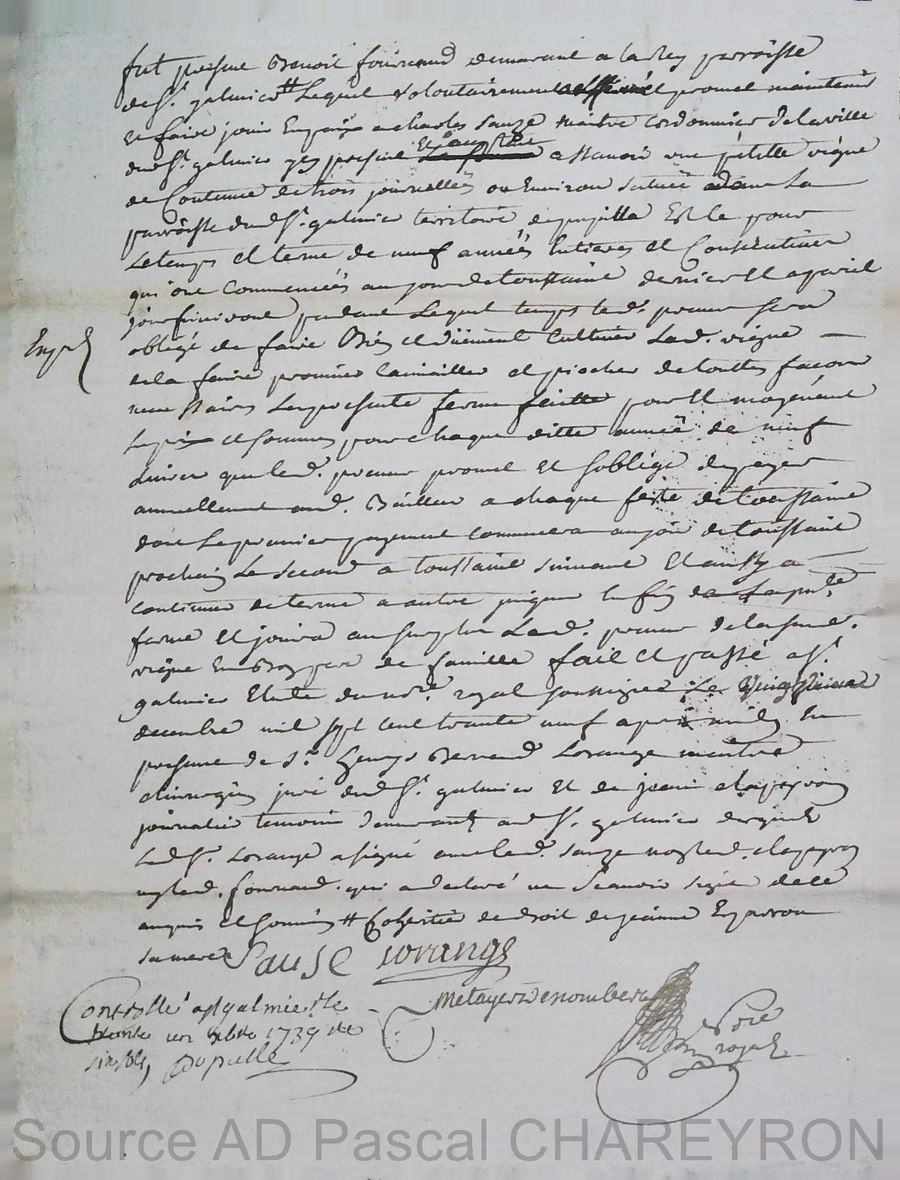 fut present Benoit fournand demeurant a la Rey parroisse
de St. galmier # Lequel volontairement promet maintenir
et faire jouir En paix a charles Sauze maitre cordonnier de la ville
dud St. galmier present a scavoir une petitte vigne
de Contenue de trois journallées ou Environ scituée dans La
parroisse dud St. galmier territoire Et ce pour
Le temps et terme de neuf années Entieres et Consecutives
qui ont Commencées au jour de toussaint dernier Et a pareil
jour finiront pendant Lequel temps led. preneur sera
obligé de faire Bien et düement Cultiver Lad. vigne
de la faire et piocher de touttes facons
necessaires La presente ferme faitte pour Et moyenent
Le prix et somme pour chaque ditte année de neuf
Livres que led. preneur promet Et s'oblige de payer
annuellement aud. Bailleur a chaque feste de Toussaint
dont Le premier payement commencera au jour de toussaint
prochain Le second a toussaint suivant Et ainsy a
continuer de terme a autre jusques La fin de La pnte
ferme Et jouira au surplus Led. preneur de la susd.
vigne En Bon pere de famille fait et passé a St.
galmier Etude du nore. royal soussigné Le
decembre mil sept cent trente neuf apres midy En
presence de Sr. Bernard Lorange maitre
chirurgien juré dud St. galmier et de jean clapeyron
journalier temoins demeurants aud St. galmier desquels
Led Sr. Lorange a signé avec led. Sauze non led. clapeyron
ny led. fournand. qui a declaré ne Scavoir signé de ce
enquis et sommés # Coheritié de droit de jeanne Eyparron
sa mere
Sause Lorange
Controllé a St galmier le
trente un Xbre 1739
six sols
metayer
royal
Source AD Pascal CHAREYRON